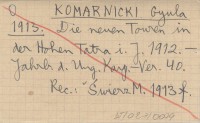 KOMARNICKI Gyula
1913. Die neuen Touren in
der Hohen Tatra i. J. 1912. —
Jahrb. d. Ung. Karp.-Ver. 40.
Rec.: Świerz M. 1913 f.